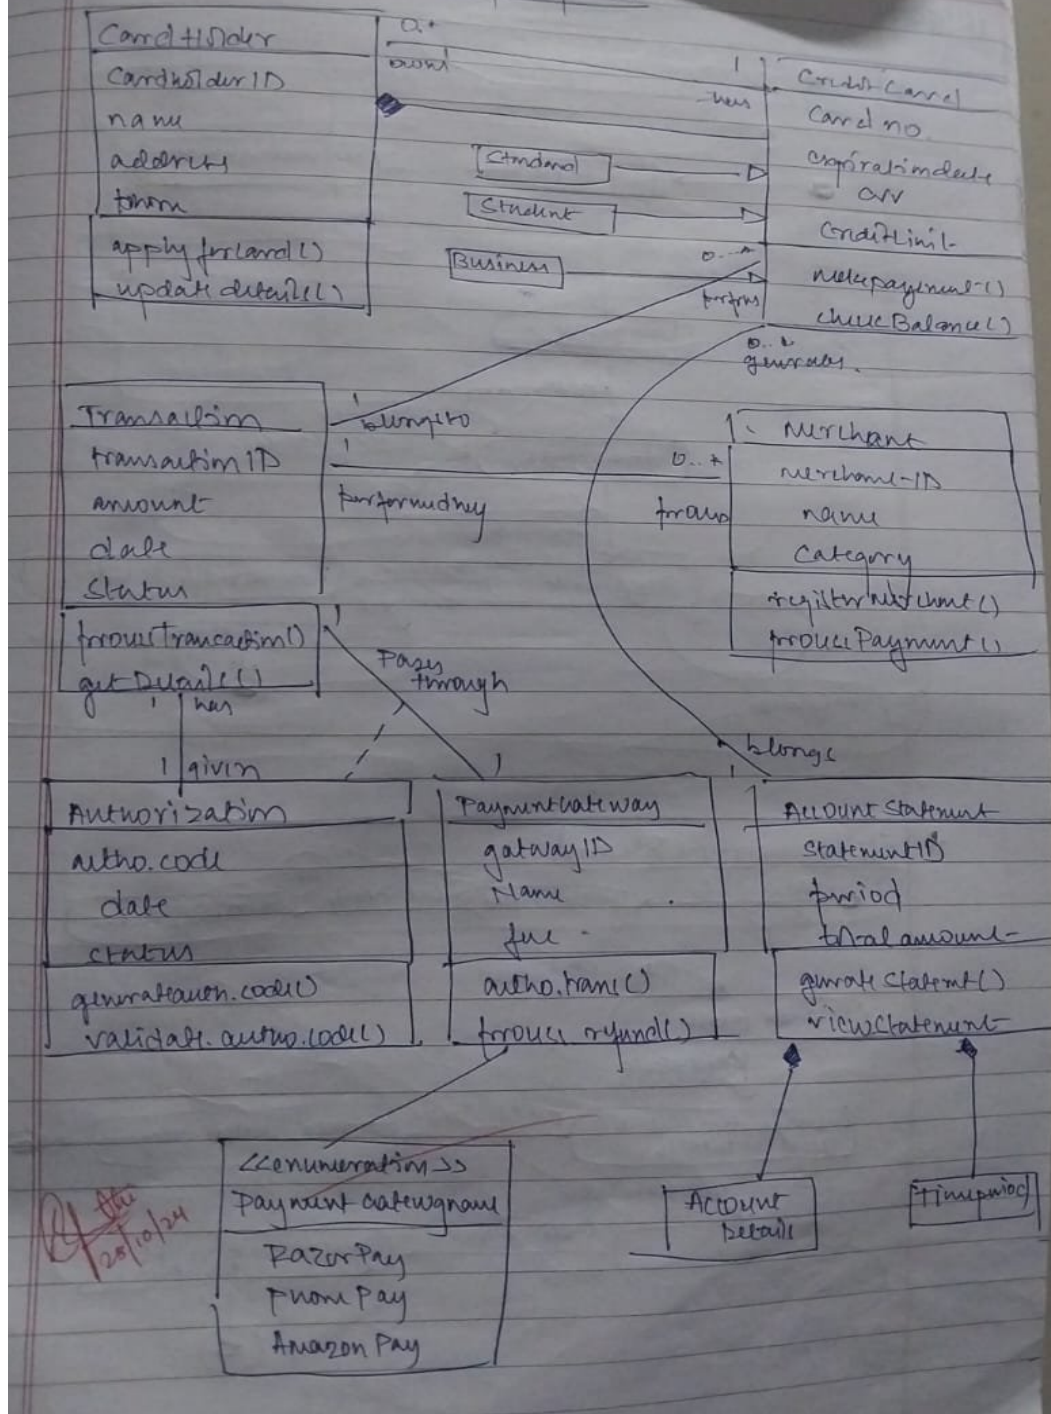 CardHolder
CardholderID
name
address
apply forCard()
update details()
0..*
1
has
Credit Card
Card no
expirationdate
CVV
creditLimit
makepayment()
checkBalance()
Standard
Student
Business
0...*
performs
0..*
generates
Transaction
transactionID
amount
date
Status
processTransaction()
getDetails()
1
belongsto
1
performedby
0..*
1.
Merchant
Merchant-ID
name
Category
registerMerchant()
processPayment()
1
Passes
through
1
1
has
1
given
belongs
1
Authorization
autho.code
date
status
generateauth.code()
validate.autho.code()
PaymentGateway
gatwayID
Name
fee
autho.trans()
process refund()
Account Statement
StatementID
period
total amount
generate Statemt()
viewStatement
<<enumeration>>
Payment Gatewayname
RazorPay
PhonePay
Amazon Pay
Account
Details
Timeperiod
25/10/24